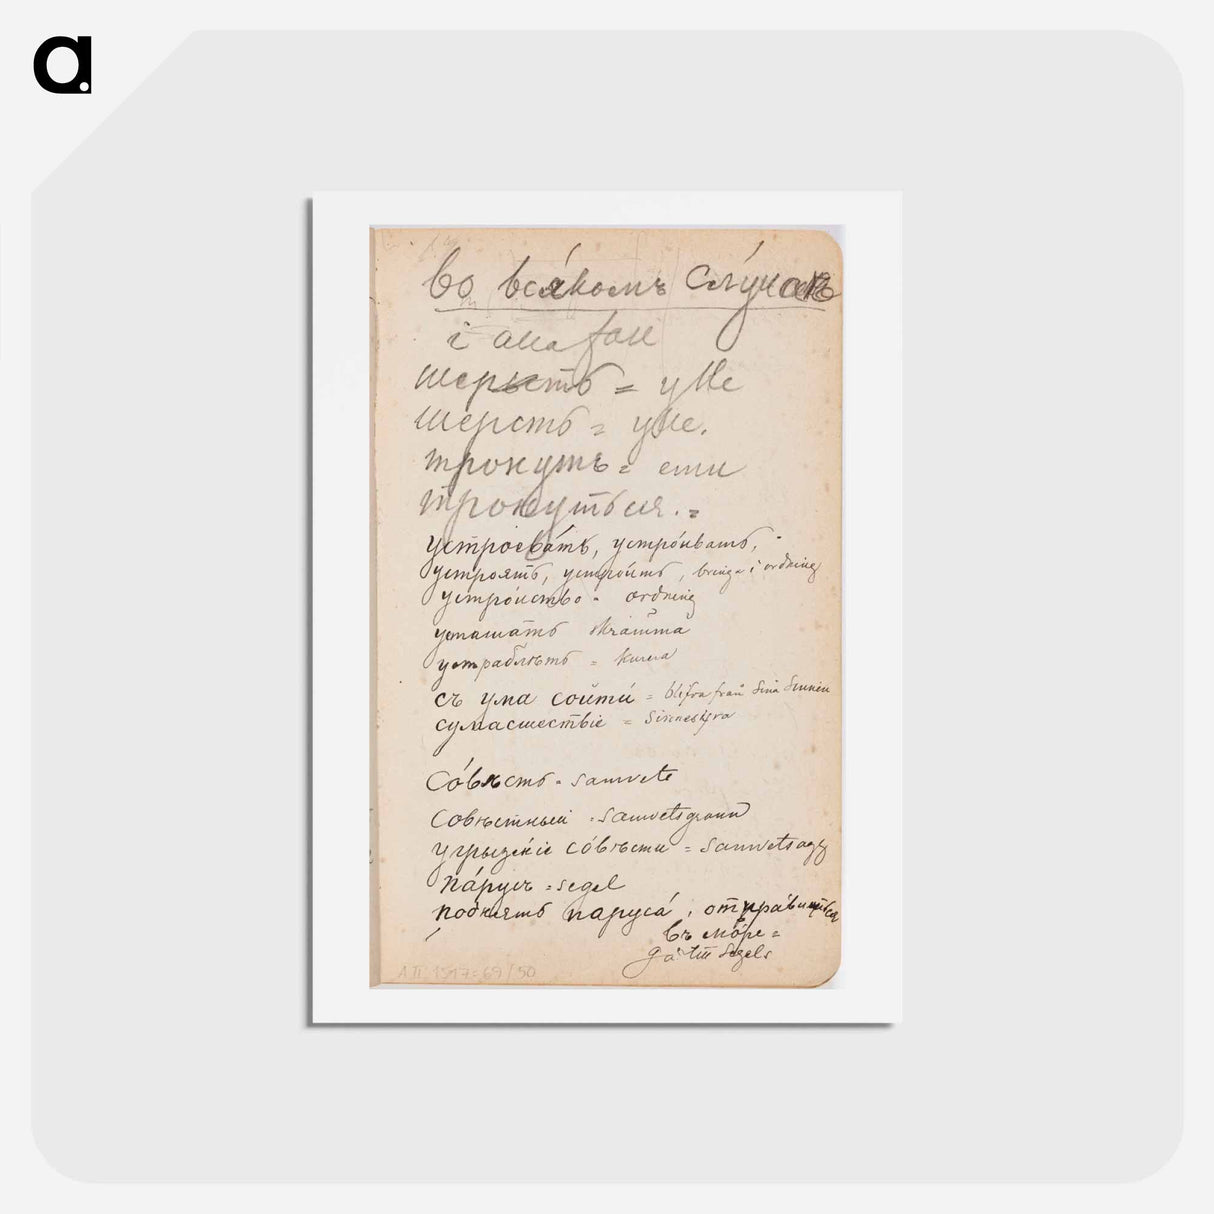 a.
во вся́комъ слу́чаѣ
i alla fall
шерысть = ylle
шерсть = ylle.
тронуть =
тронуться. =
устроева́ть, устро́ивать,
устроять, устро́ить, bringa i ordning
устро́иство = ordning
устраша́ть skrämma
сх ума сойти́ = blifva från sina sinnen
сумасшествіе =
Со́вѣсть = samvete
Совѣстный = samvetsgrann
угрызе́ніе со́вѣсти = samvetsagg
Па́русъ = segel
поднять паруса́, отпра́виться
въ мо́ре =
gå till segels
A II 1517:69/50